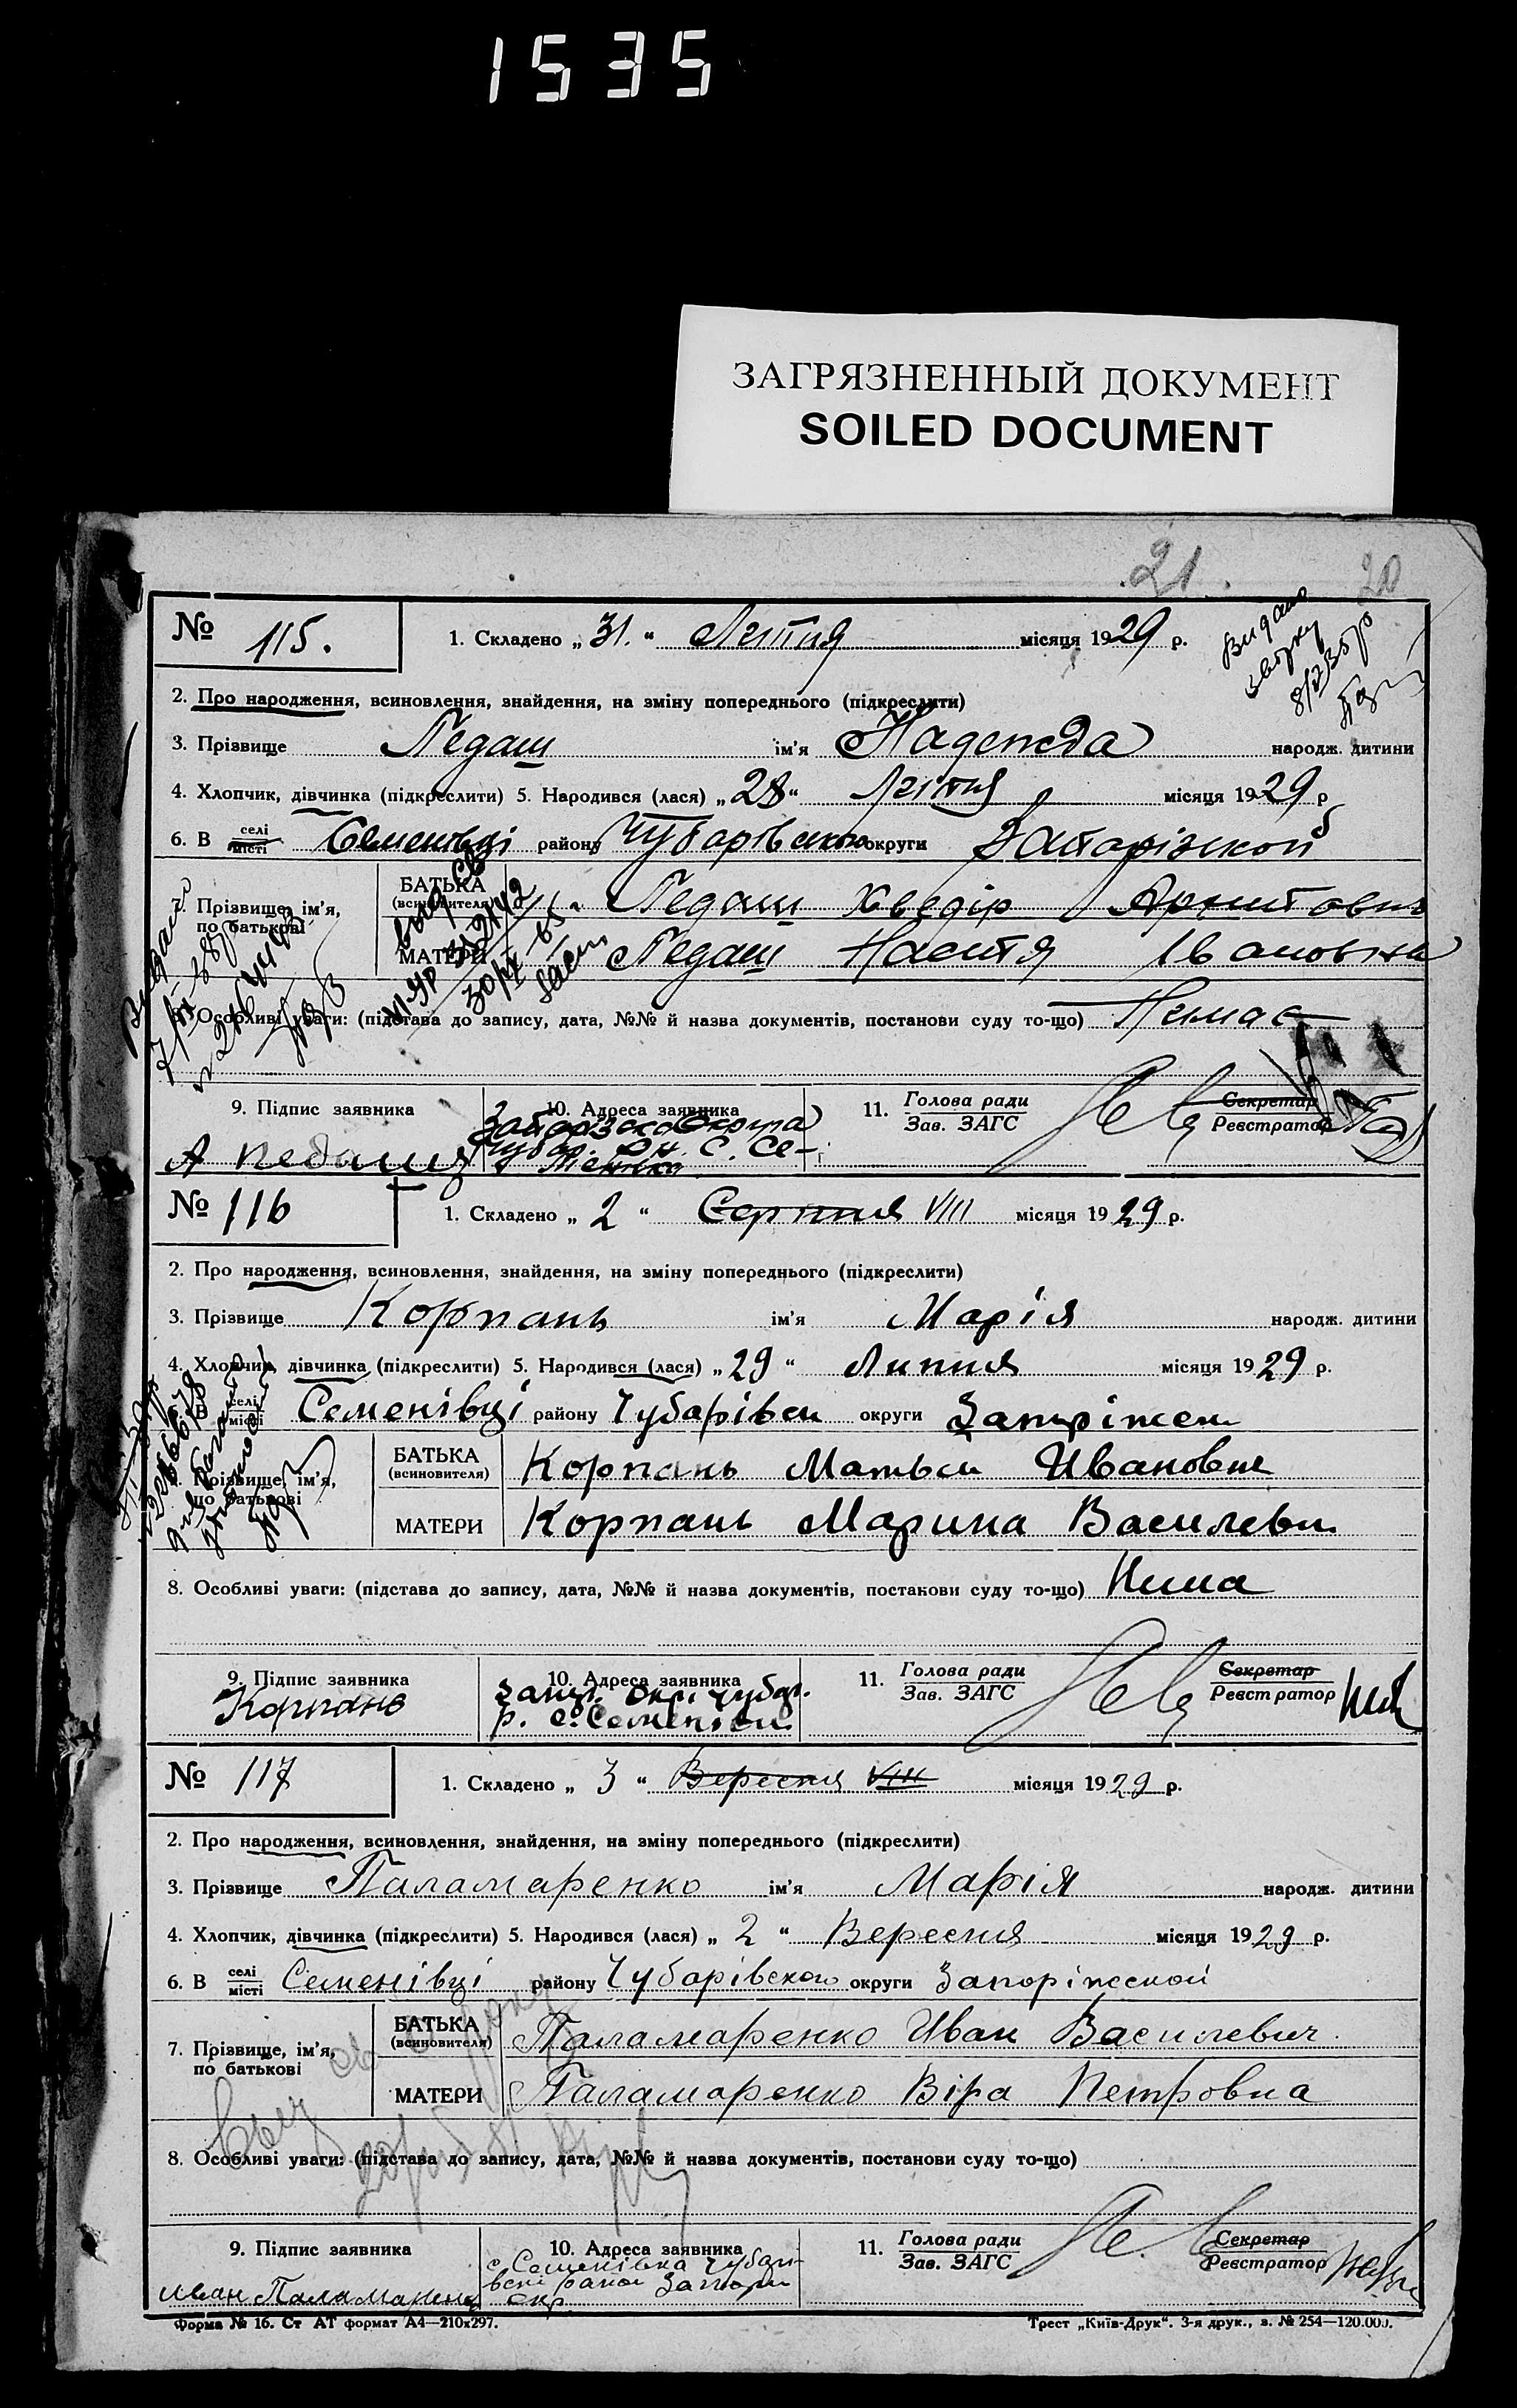 1535
ЗАГРЯЗНЕННЫЙ ДОКУМЕНТ
SOILED DOCUMENT
21. 20
№ 115. 1. Складено „ 31. “ Лепня місяця 1929 р.
Видано
8/II 35 р
2. Про народження, всиновлення, знайдення, на зміну попереднього (підкреслити)
3. Прізвище Педаш ім'я Надежда народж. дитини
4. Хлопчик, дівчинка (підкреслити) 5. Народився (лася) „ 28 “ місяця 1929 р
6. В селі місті Семенівці району Чубарівського округи Запорізької
7. Прізвище, ім'я, по батькові БАТЬКА (всиновителя) Педаш Хведір
МАТЕРИ Педаш Настя Івановна
8. Особливі уваги: (підстава до запису, дата, №№ й назва документів, постанови суду то-що) Немає
9. Підпис заявника 10. Адреса заявника 11. Голова ради Зав. ЗАГС Секретар Реєстратор
А Педаш
с. Се-
№ 116 1. Складено „ 2 “ Серпня VIII місяця 1929 р.
2. Про народження, всиновлення, знайдення, на зміну попереднього (підкреслити)
3. Прізвище Корпань ім'я Марія народж. дитини
4. Хлопчик, дівчинка (підкреслити) 5. Народився (лася) „ 29 “ Липня місяця 1929 р.
6. В селі місті Семенівці району Чубарівськ округи Запоріжськ
7. Прізвище, ім'я, по батькові БАТЬКА (всиновителя) Корпань Матвій Ивановие
МАТЕРИ Корпань Марина Василевн
8. Особливі уваги: (підстава до запису, дата, №№ й назва документів, постанови суду то-що) Нима
9. Підпис заявника 10. Адреса заявника 11. Голова ради Зав. ЗАГС Секретар Реєстратор
Корпань
р. с. Семенівк
№ 117 1. Складено „ 3 “ Вересня VIII місяця 1929 р.
2. Про народження, всиновлення, знайдення, на зміну попереднього (підкреслити)
3. Прізвище Паламаренко ім'я Марія народж. дитини
4. Хлопчик, дівчинка (підкреслити) 5. Народився (лася) „ 2 “ Вересня місяця 1929 р.
6. В селі місті Семенівці району Чубарівского округи Запоріжской
7. Прізвище, ім'я, по батькові БАТЬКА (всиновителя) Паламаренко Иван Василевич.
МАТЕРИ Паламаренко Віра Петровна
8. Особливі уваги: (підстава до запису, дата, №№ й назва документів, постанови суду то-що)
9. Підпис заявника 10. Адреса заявника 11. Голова ради Зав. ЗАГС Секретар Реєстратор
с. Семенівка
Иван окр.
Форма № 16. Ст АТ формат А4—210х297. Трест „Київ-Друк“. 3-я друк., з. № 254—120.000.